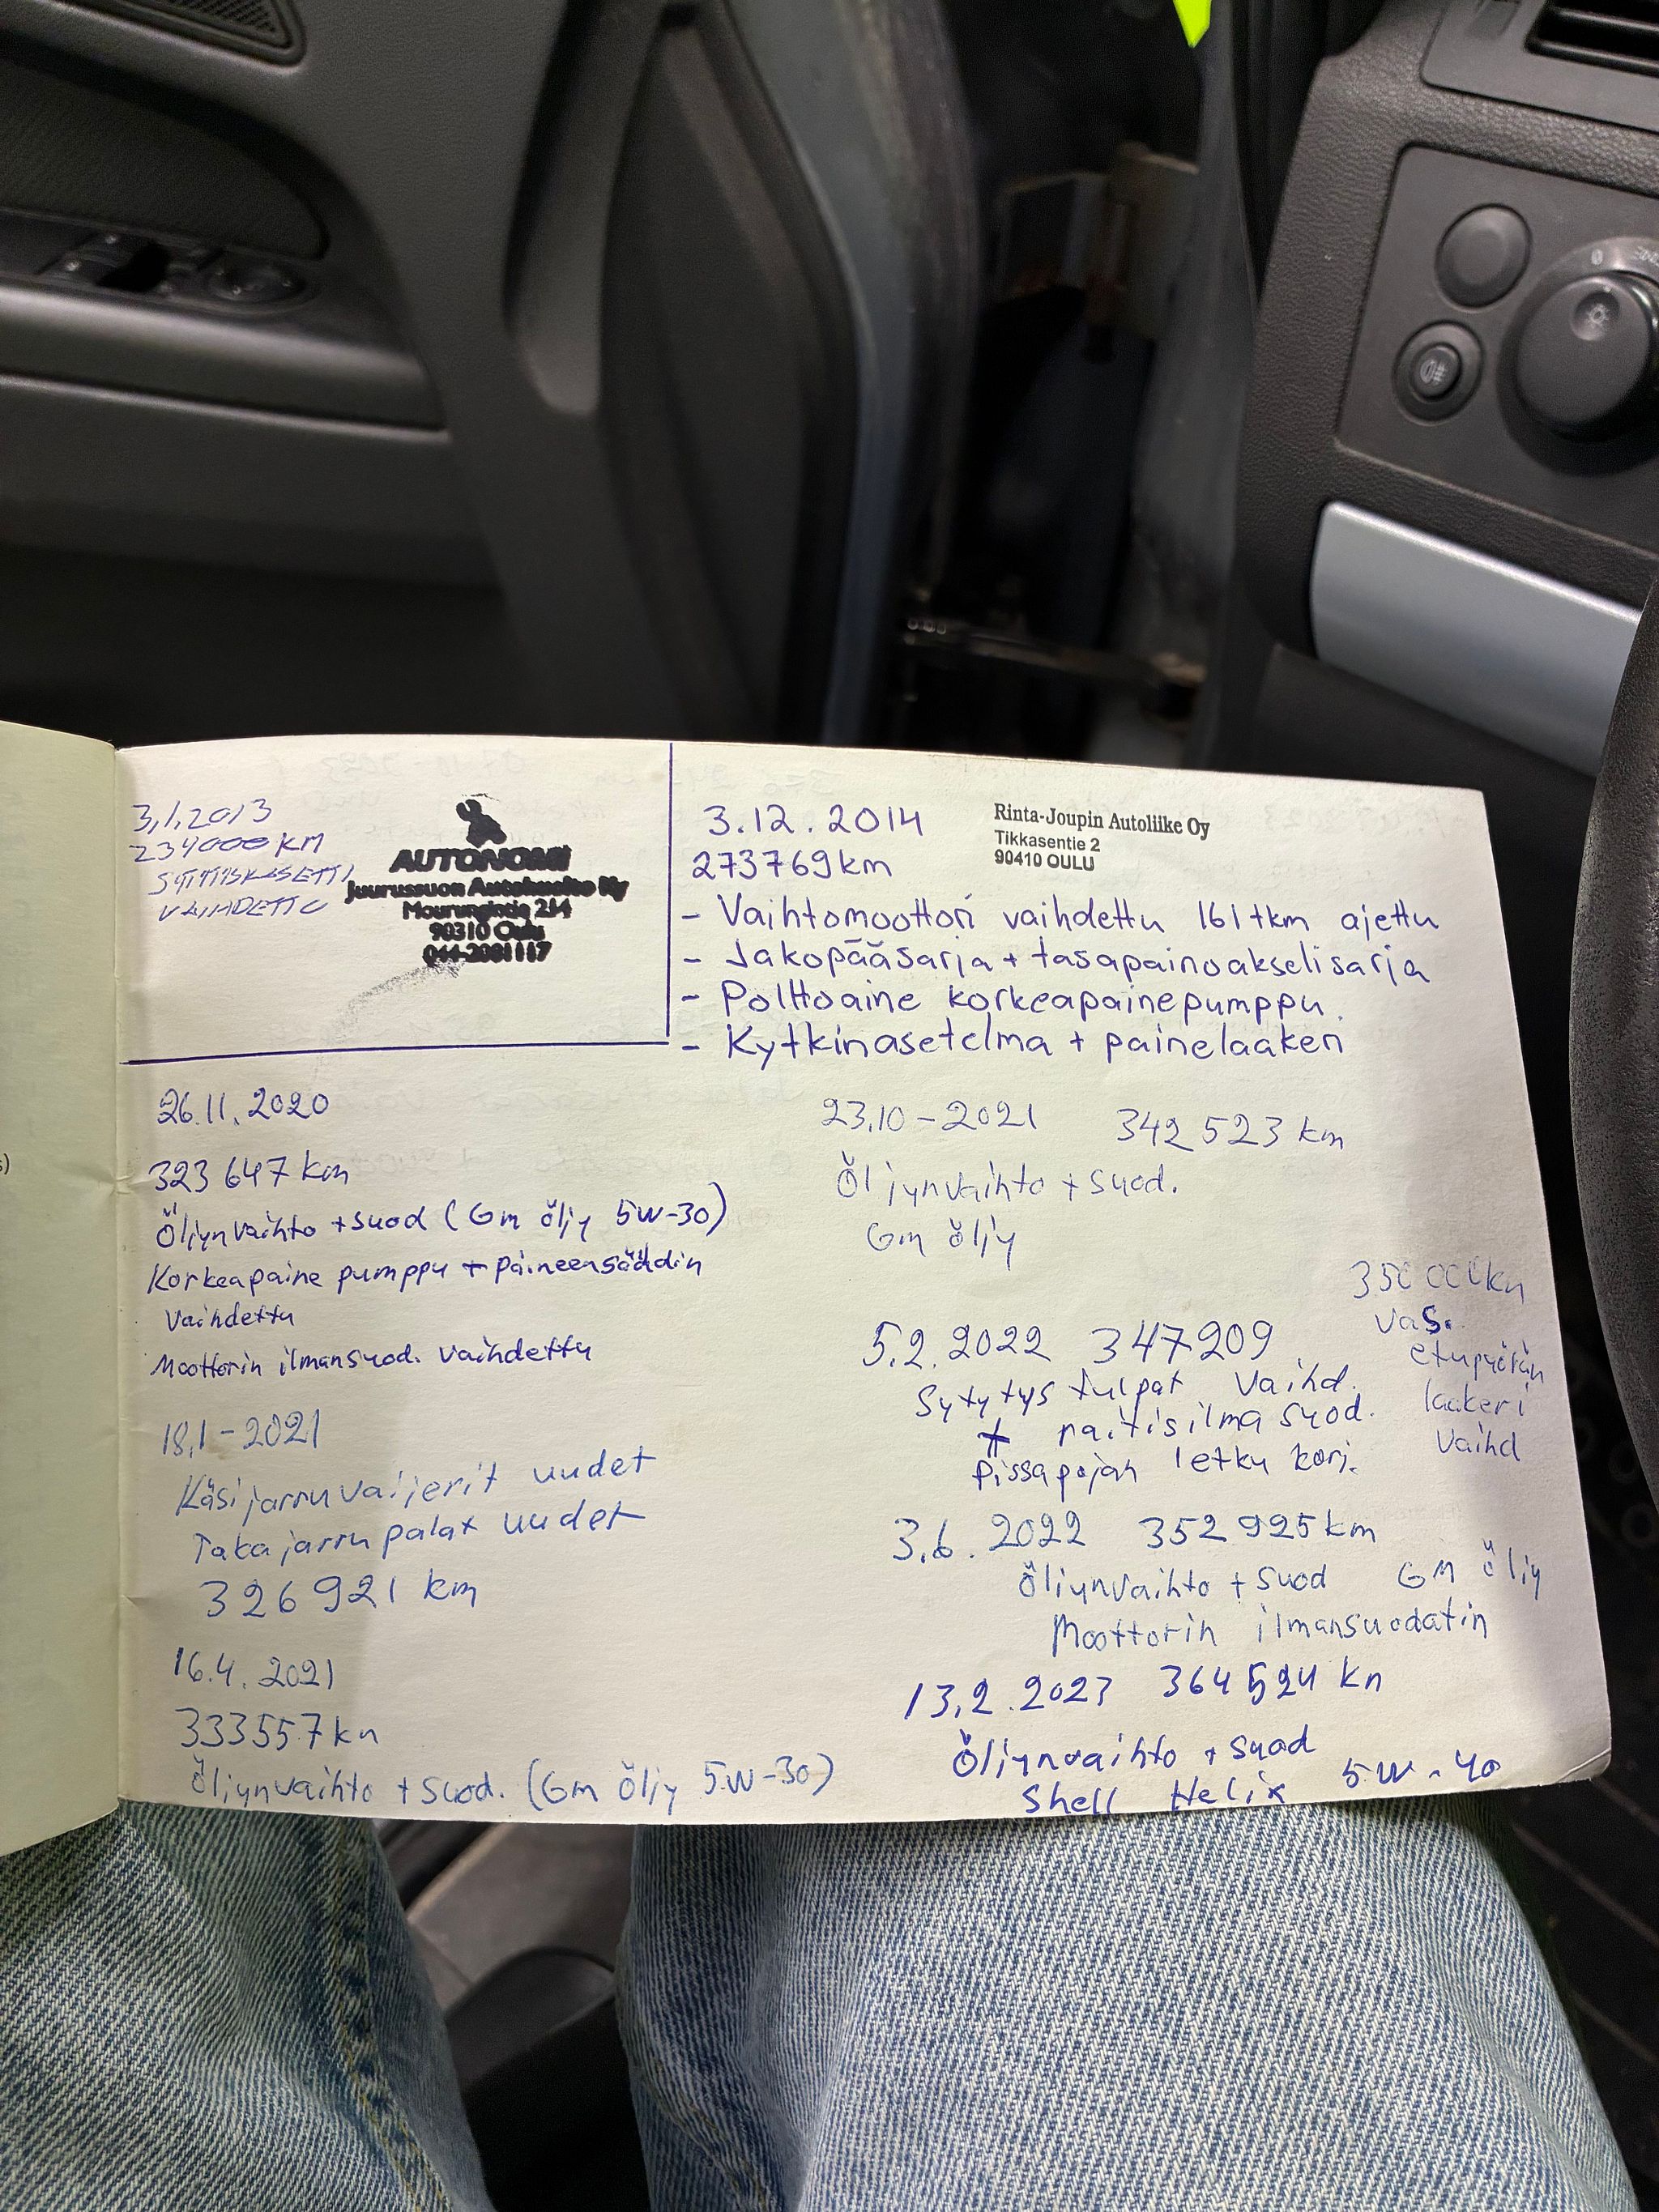 3.1.2013
234000 KM
SYTYTYSKASETTI
VAIHDETTU
AUTONOMI
Juurussuon Autohuolto Ky
90310 Oulu
044-2081117
3.12.2014
273769km
Rinta-Joupin Autoliike Oy
Tikkasentie 2
90410 OULU
- Vaihtomoottori vaihdettu 161tkm ajettu
- Jakopääsarja + tasapainoakselisarja
- Polttoaine korkeapainepumppu.
- Kytkinasetelma + painelaakeri
26.11.2020
323647 km
Öljynvaihto + suod (Gm öljy 5W-30)
Korkeapaine pumppu + paineensäädin
Vaihdettu
Moottorin ilmansuod. vaihdettu
18.1-2021
Käsijarruvaijerit uudet
Takajarrupalat uudet
326921 km
16.4.2021
333557km
Öljynvaihto + suod. (Gm öljy 5W-30)
23.10-2021 342 523 km
Öljynvaihto + suod.
Gm öljy
350 000km
vas.
etupyörän
laakeri
vaihd
5.2.2022 347209
Sytytys tulpat vaihd.
+ raitisilma suod.
Pissapojan letku korj.
3.6.2022 352 925 km
Öljynvaihto + suod GM öljy
Moottorin ilmansuodatin
13.2.2023 364 524 km
Öljynvaihto + suod
Shell Helix 5W-40